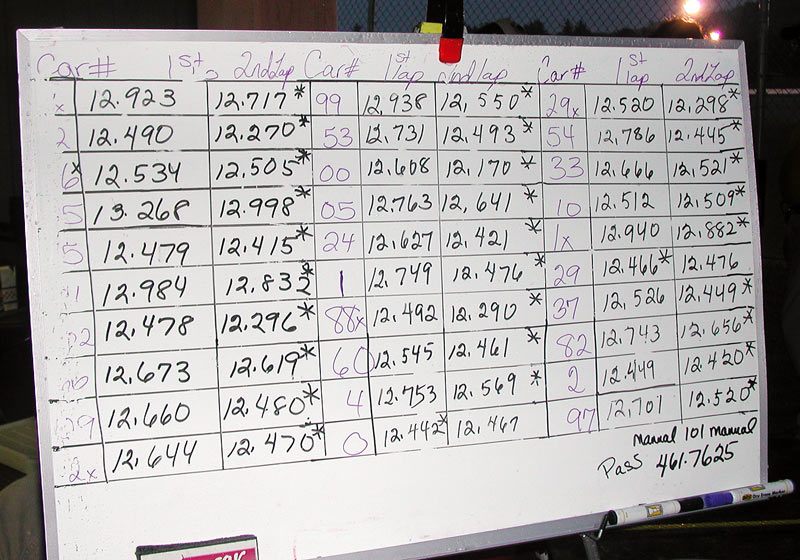 Car# 1st 2nd Lap Car# 1st lap 2nd lap Car# 1st lap 2nd Lap
x 12.923 12.717* 99 12.938 12,550* 29x 12.520 12,298*
2 12.490 12.270* 53 12.731 12.493* 54 12,786 12.445*
6x 12.534 12.505* 00 12.608 12,170* 33 12.666 12,521*
5 13.268 12.998* 05 12.763 12,641* 10 12.512 12,509*
5 12.479 12.415* 24 12.627 12.421* 1x 12.940 12.882*
1 12.984 12.832* 1 12.749 12.476* 29 12.466* 12.476
2 12.478 12.296* 88x 12.492 12.290* 37 12,526 12.449*
12.673 12.619* 60 12.545 12.461* 82 12.743 12.656*
29 12.660 12.480* 4 12.753 12.569* 2 12.449 12.420*
2x 12.644 12.470* 0 12.442* 12,467 97 12,701 12.520*
Manual 101 manual
Pass 461.7625